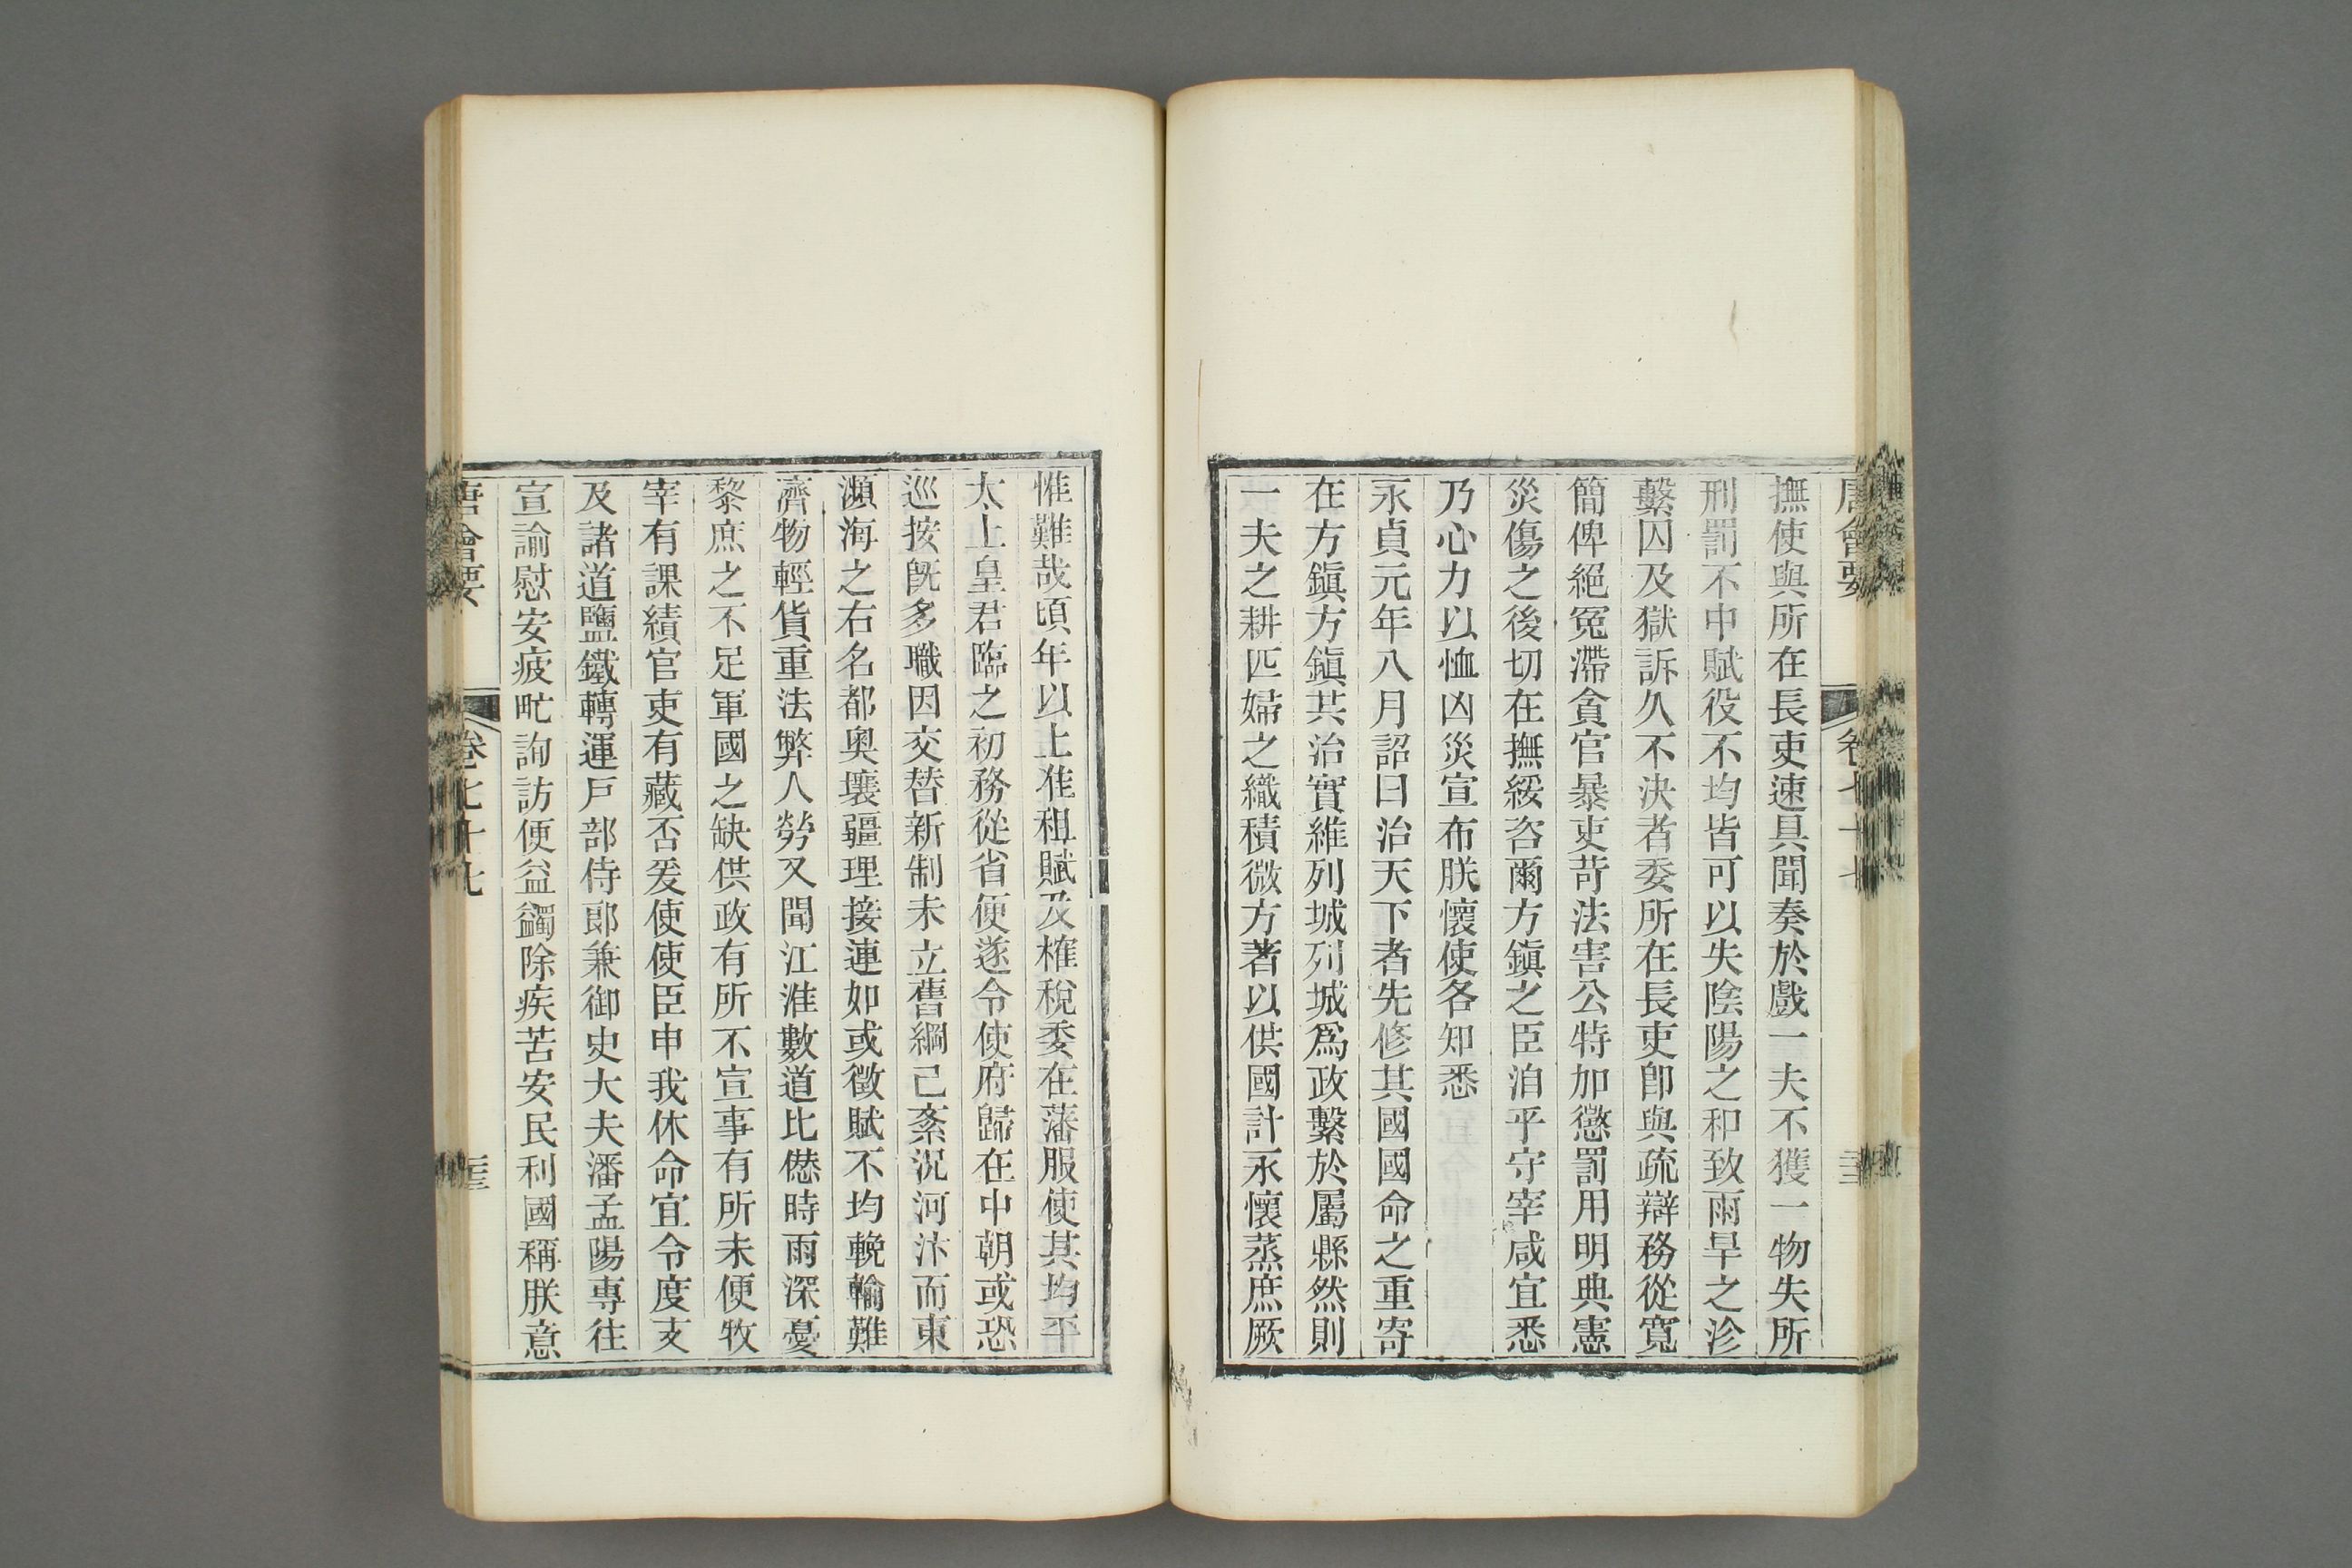 唐會要 卷七十七
撫使與所在長吏速具聞奏於戲一夫不獲一物失所
刑罰不中賦役不均皆可以失陰陽之和致雨旱之沴
繫囚及獄訴久不決者委所在長吏卽與疏辯務從寬
簡俾絕冤滯貪官暴吏苛法害公特加懲罰用明典憲
災傷之後切在撫綏咨爾方鎭之臣洎乎守宰咸宜悉
乃心力以恤凶災宣布朕懷使各知悉
永貞元年八月詔曰治天下者先修其國國命之重寄
在方鎭方鎭其治實維列城列城爲政繫於屬縣然則
一夫之耕匹婦之織積微方著以供國計永懷蒸庶厥
惟難哉頃年以上准租賦及榷稅委在藩服使其均平
太上皇君臨之初務從省便遂令使府歸在中朝或恐
巡按旣多職因交替新制未立舊綱已紊況河汴而東
瀕海之右名都奧壤疆理接連如或徵賦不均輓輸難
濟物輕貨重法弊人勞又聞江淮數道比愆時雨深憂
黎庶之不足軍國之缺供政有所不宣事有所未便牧
宰有課績官吏有藏否爰使使臣申我休命宜令度支
及諸道鹽鐵轉運戶部侍郎兼御史大夫潘孟陽專往
宣諭慰安疲甿詢訪便益蠲除疾苦安民利國稱朕意
唐會要 卷七十七